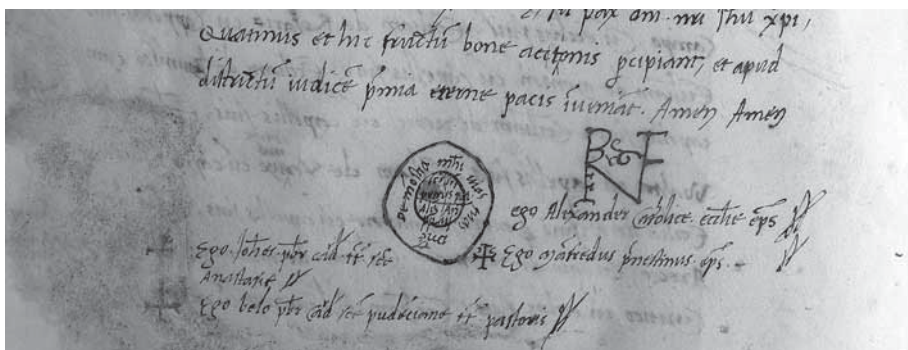 et sit pax dni. nri Ihu xpi,
Quatinus et hic fructũ bone actionis p̱cipiant, et apud
districtũ iudicẽ p̃mia eterne pacis ĩveniãt. Amen Amen
ego Alexander catolice ecctie ep̃s
Ego Joh̃es p̃br card. tt. sc̃e
✠ Ego Mãfredus p̃nestinus ep̃s.
Anastasie
Ego boso p̃br card sc̃e pudẽciane tt. pastoris